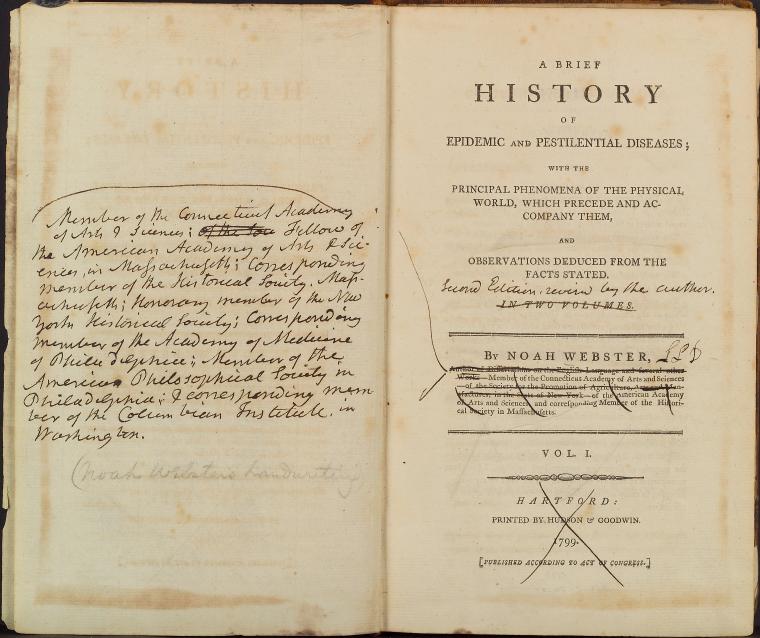 Member of the Connecticut Academy
of Arts & Sciences; of the Soc Fellow of
the American Academy of Arts & Sci-
ences, in Massachusetts; Corresponding
member of the Historical Society, Mass-
achusetts; Honorary member of the New
York Historical Society; Corresponding
member of the Academy of Medicine
of Philadelphia; Member of the
American Philosophical Society in
Philadelphia; & corresponding mem
ber of the Columbian Institute, in
Washington.
(Noah Webster's handwriting)
A BRIEF
HISTORY
OF
EPIDEMIC AND PESTILENTIAL DISEASES;
WITH THE
PRINCIPAL PHENOMENA OF THE PHYSICAL
WORLD, WHICH PRECEDE AND AC-
COMPANY THEM,
AND
OBSERVATIONS DEDUCED FROM THE
FACTS STATED.
Second Edition, revised by the author.
IN TWO VOLUMES.
By NOAH WEBSTER, LLD
Author of Dissertations on the English Language and several other
Works—Member of the Connecticut Academy of Arts and Sciences
—of the Society for the Promotion of Agriculture, Arts and Man-
ufactures, in the State of New York—of the American Academy
of Arts and Sciences, and corresponding Member of the Histori-
cal Society in Massachusetts.
VOL. I.
HARTFORD:
PRINTED BY HUDSON & GOODWIN.
1799.
[PUBLISHED ACCORDING TO ACT OF CONGRESS.]